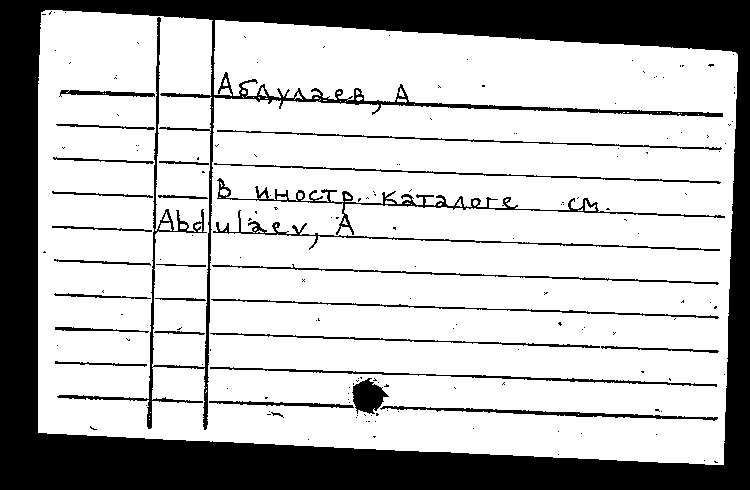 Абдулаев, А
В иностр. каталоге см.
Abdulaev, A